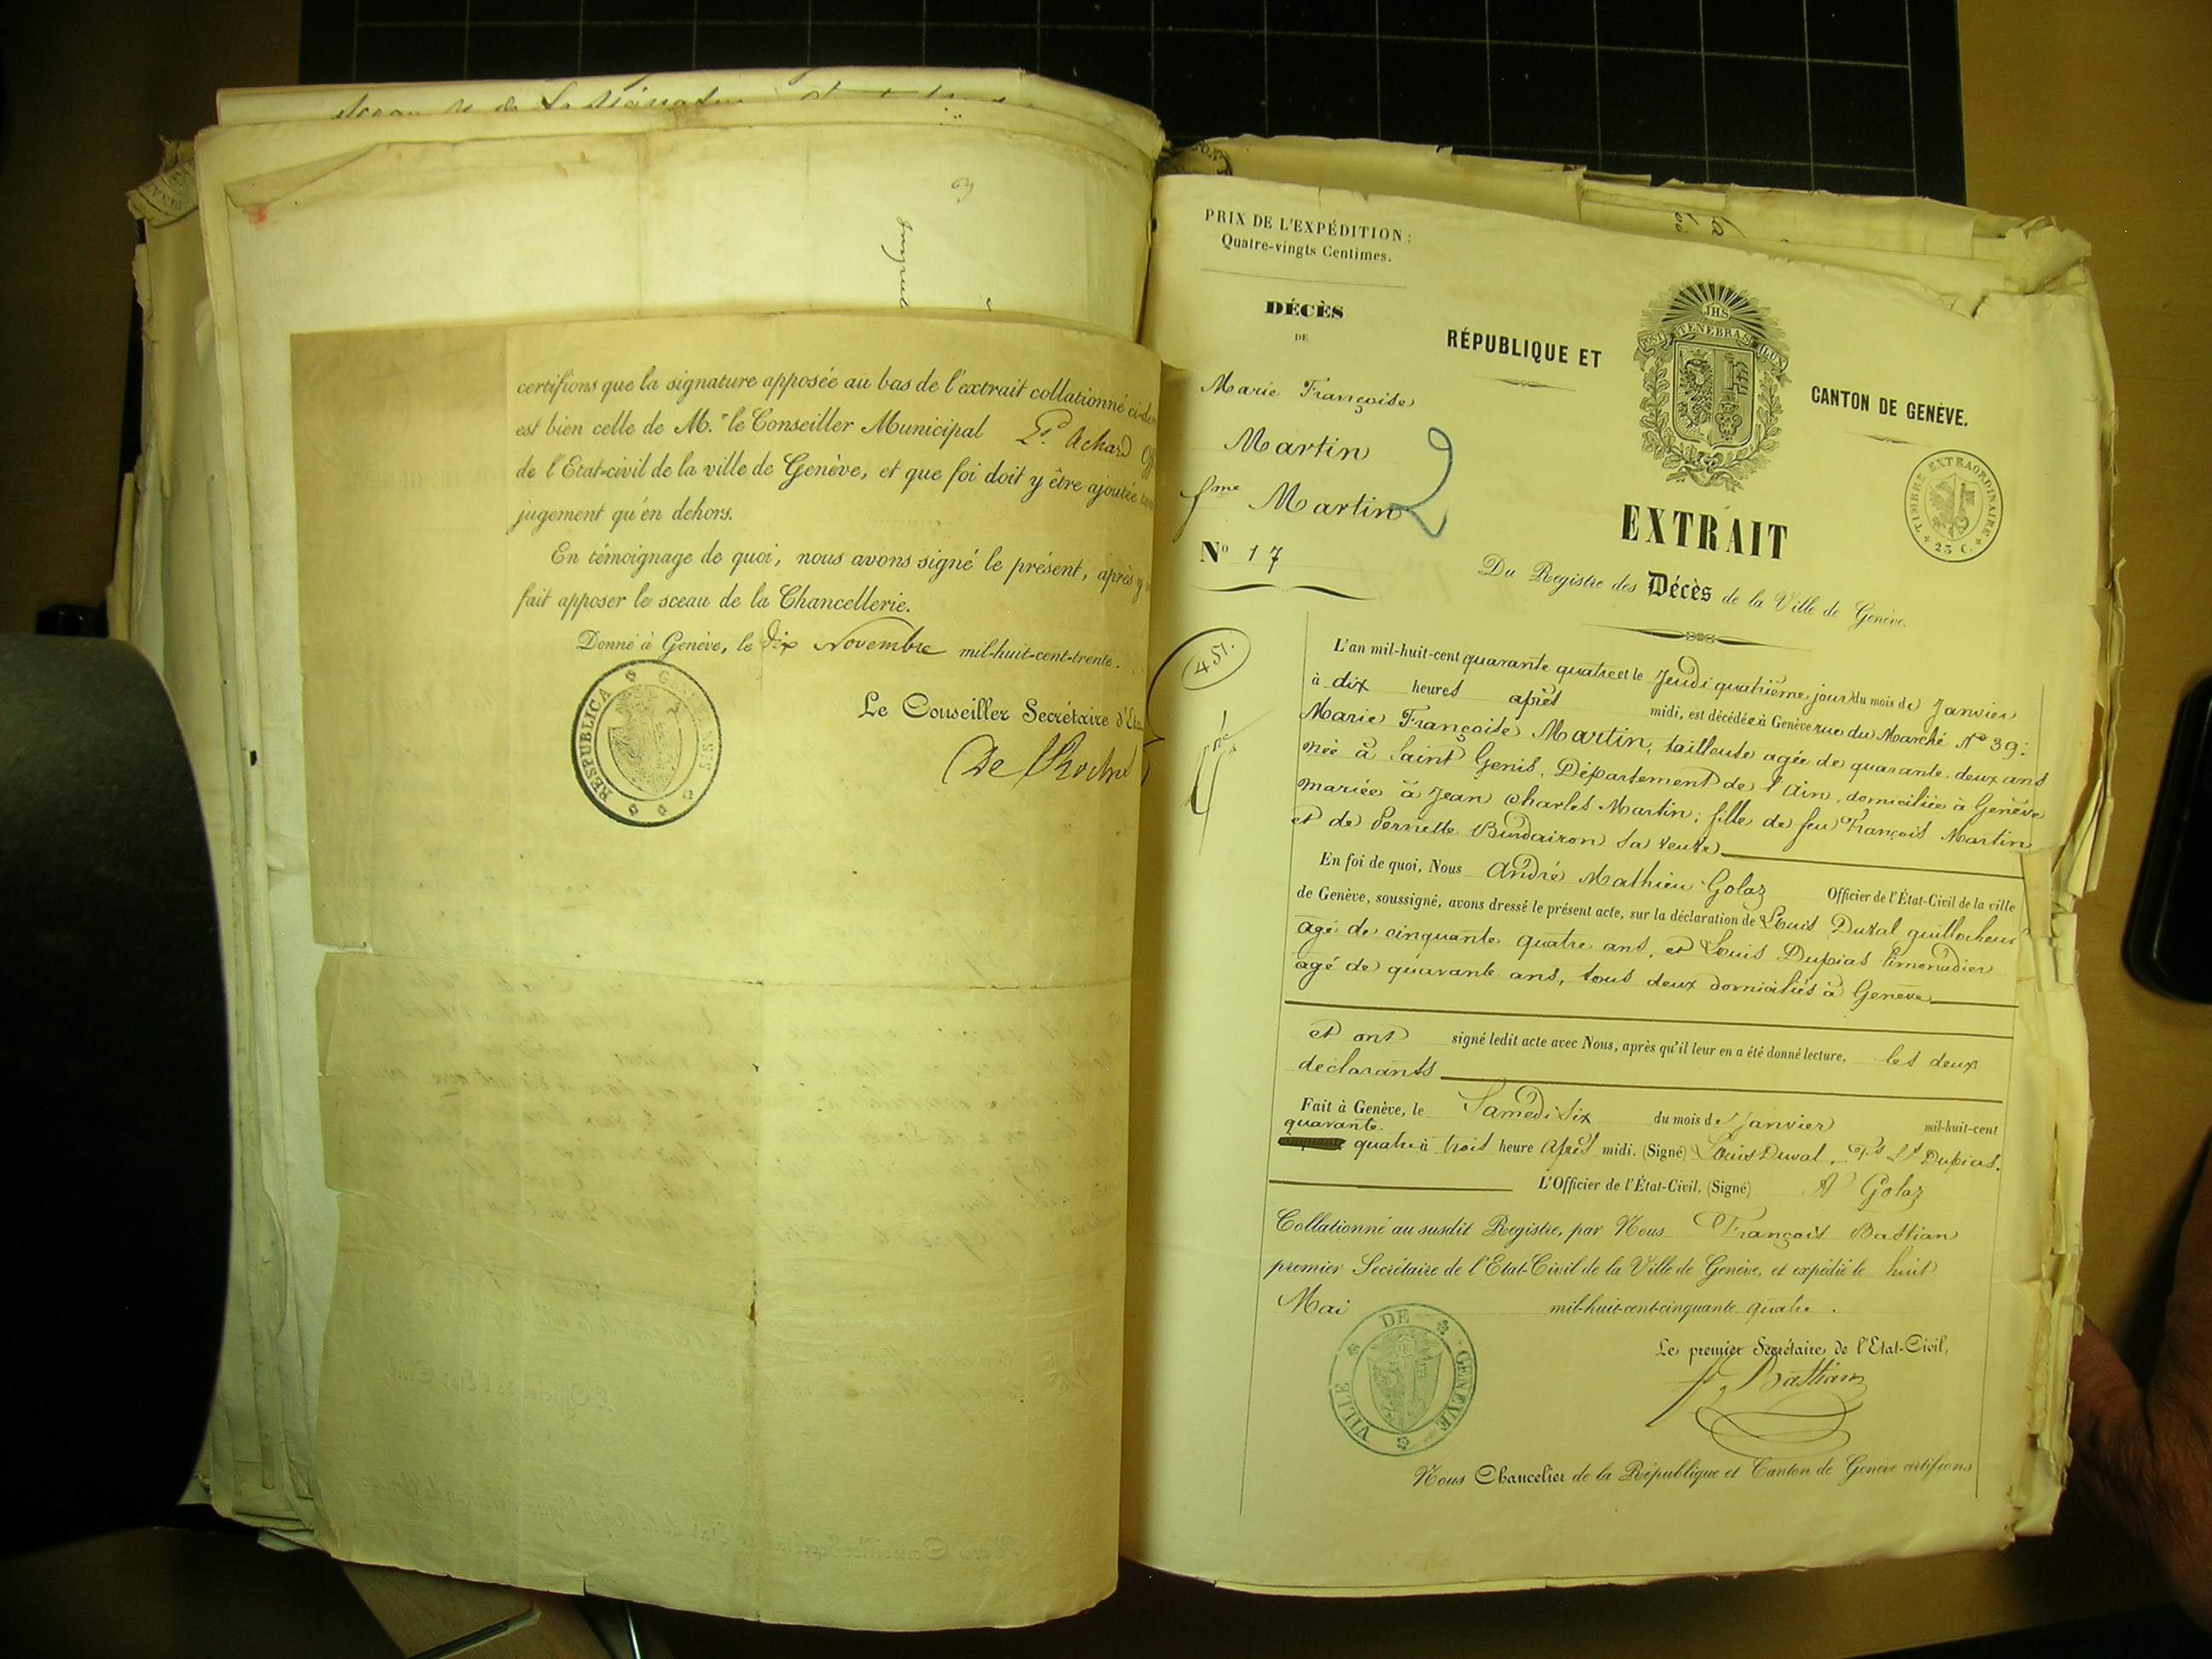 certifions que la signature apposée au bas de l'extrait collationné
est bien celle de M.r le Conseiller Municipal Achard
de l'Etat-civil de la ville de Genève, et que foi doit y être ajoutée
jugement qu'en dehors.
En témoignage de quoi, nous avons signé le présent, après y
fait apposer le sceau de la Chancellerie.
Donné à Genève, le dix Novembre mil-huit-cent-trente.
RESPUBLICA
Le Conseiller Secrétaire
PRIX DE L'EXPÉDITION :
Quatre-vingts Centimes.
DÉCÈS
DE
Marie Françoise
Martin
fme Martin
2
No 17
451.
JHS
POST TENEBRAS LUX
RÉPUBLIQUE ET
CANTON DE GENÈVE.
TIMBRE EXTRAORDINAIRE
25 C.
EXTRAIT
Du Registre des Décès de la Ville de Genève.
L'an mil-huit-cent quarante quatre et le Jeudi quatrième jour du mois de Janvier
à dix heures après midi, est décédée à Genève rue du Marché No 39:
Marie Françoise Martin, tailleuse agée de quarante-deux ans
née à Saint Genis, Département de l'Ain, domiciliée à Genève
mariée à Jean Charles Martin; fille de feu François Martin
et de Pernette sa veuve
En foi de quoi, Nous André Mathieu Golaz Officier de l'État-Civil de la ville
de Genève, soussigné, avons dressé le présent acte, sur la déclaration de Louis Duval guillocheur
agé de cinquante quatre ans, et Louis Dupias limonadier
agé de quarante ans, tous deux domiciliés à Genève
et ont signé ledit acte avec Nous, après qu'il leur en a été donné lecture, les deux
déclarants
Fait à Genève, le Samedi Six du mois de Janvier mil-huit-cent
quarante
quatre à trois heure après midi. (Signé) Louis Duval, Dupias.
L'Officier de l'État-Civil. (Signé) A Golaz
Collationné au susdit Registre, par Nous François Bastian
premier Secrétaire de l'Etat-Civil de la Ville de Genève, et expédié le huit
Mai mil-huit-cent-cinquante quatre.
Le premier Secrétaire de l'Etat-Civil,
f. Bastian
VILLE DE GENEVE
Nous Chancelier de la République et Canton de Genève certifions